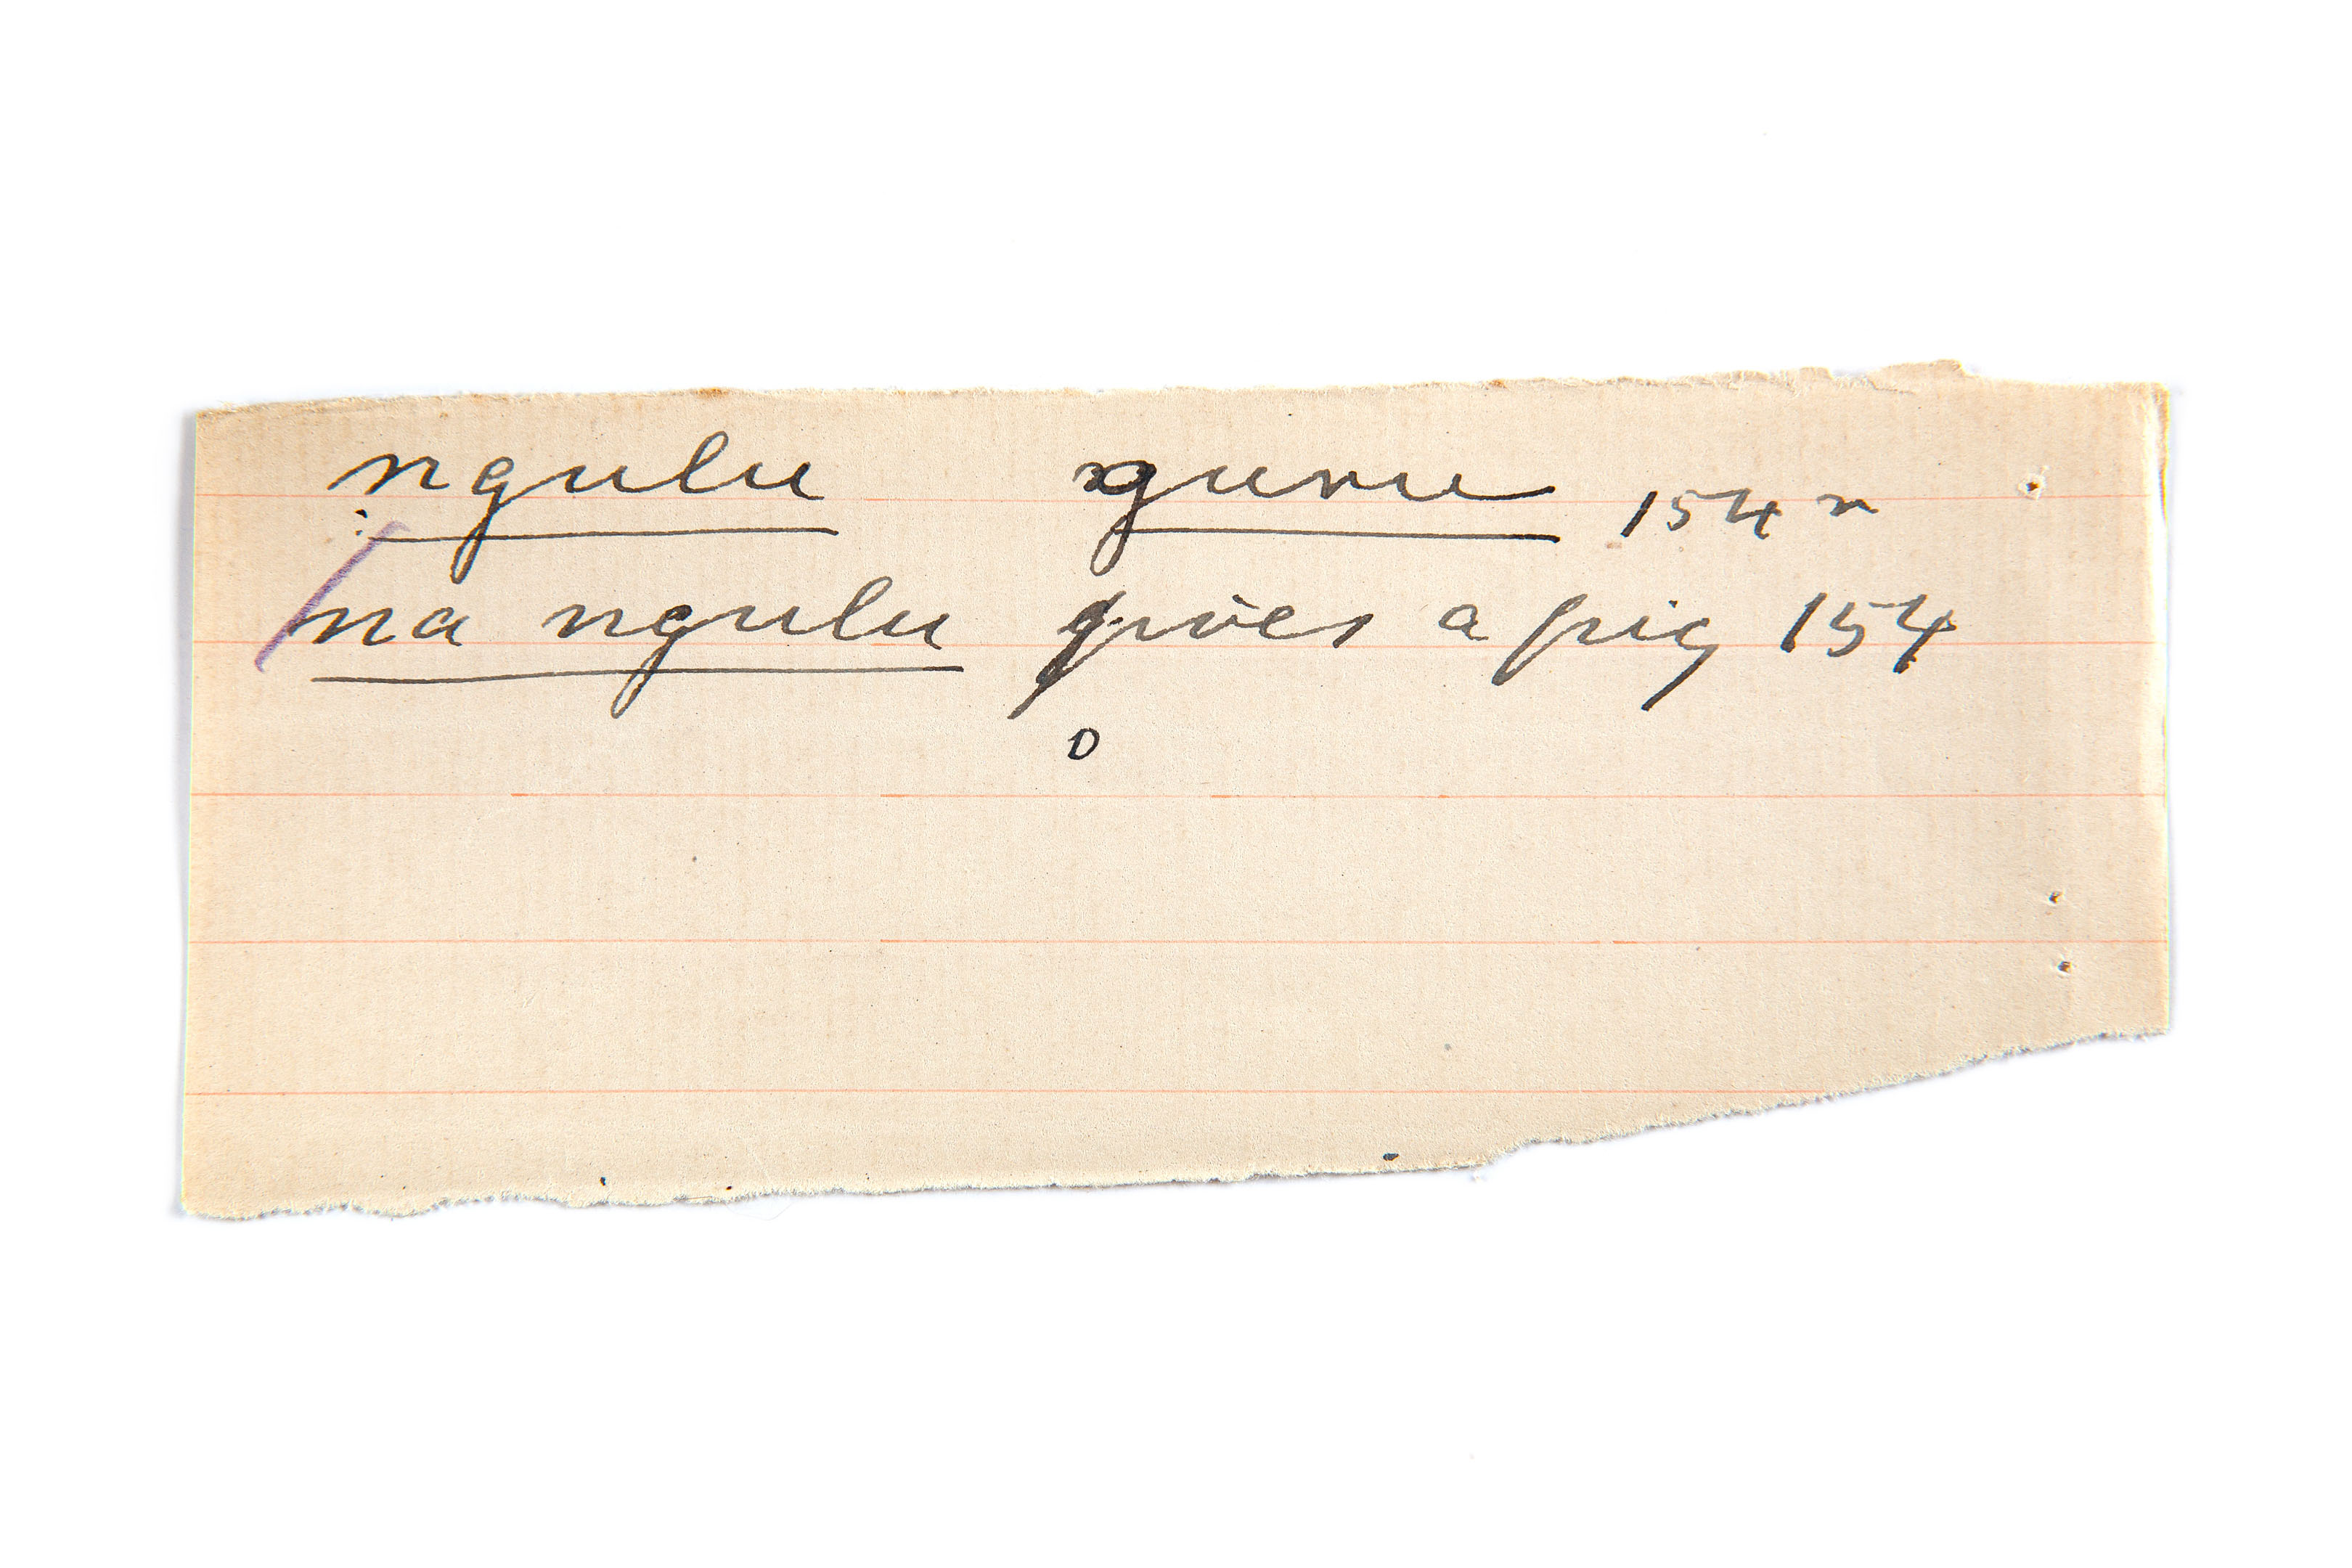 ngulu guru 154 n
na ngulu gives a pig 154
o